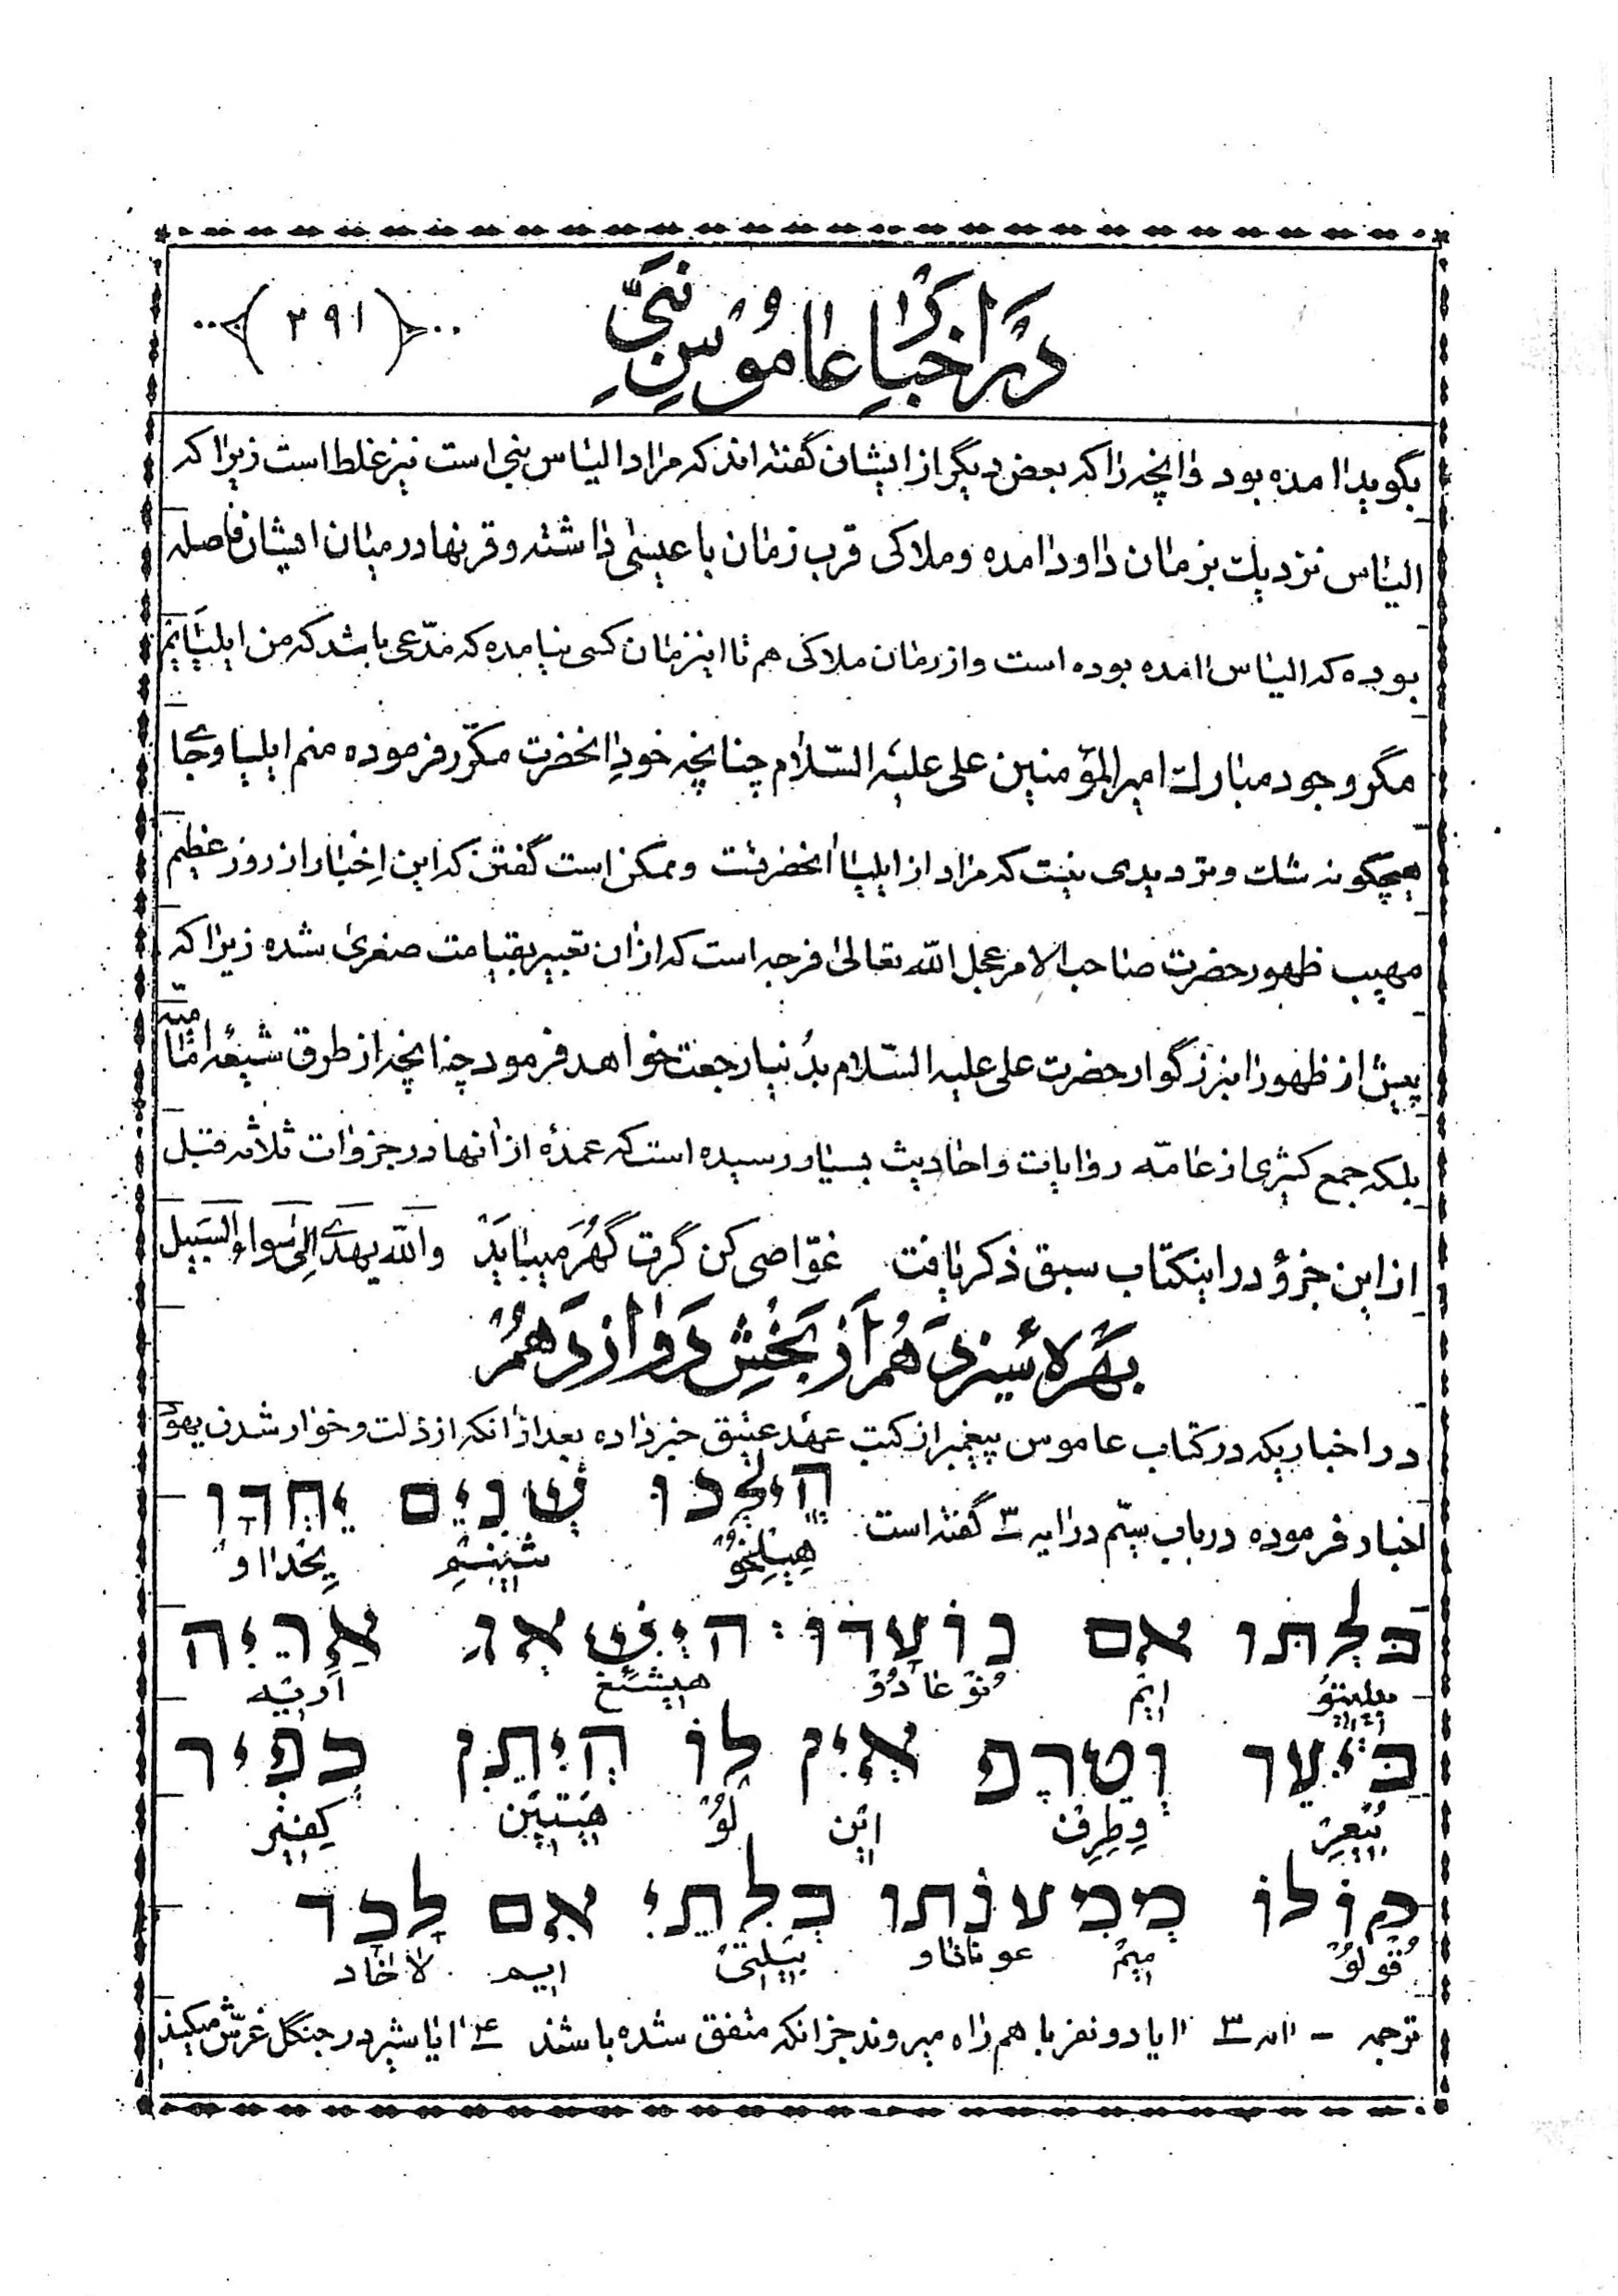 در اخبار عاموس نبی
(۲۹۱)
بگوید امده بود و انچه را که بعض دیگر از ایشان گفته اند که مراد الیاس نبی است نیز غلط است زیرا که
الیاس نزدیک بزمان داود امده و ملاکی قرب زمان با عیسی داشته و قرنها در میان ایشان فاصله
بوده که الیاس امده بوده است و از زمان ملاکی هم تا اینزمان کسی نیامده که مدّعی باشد که من ایلیایم
مگر وجود مبارک امیرالمؤمنین علی علیه السّلام چنانچه خود انحضرت مکرّر فرموده منم ایلیا و جای
هیچگونه شک و تردیدی نیست که مراد از ایلیا انحضرتست و ممکن است گفتن که این اِخبار از روز عظیم
مهیب ظهور حضرت صاحب الامر عجل الله تعالی فرجه است که از ان تعبیر بقیامت صغری شده زیرا که
پیش از ظهور انبزرگوار حضرت علی علیه السّلام بدُنیا رجعت خواهد فرمود چنانچه از طرق شیعهٔ امامیّه
بلکه جمع کثیری از عامّه روایات و احادیث بسیار رسیده است که عمدهٔ از انها در جزوات ثلاثه قبل
از این جزؤ در اینکتاب سبق ذکر یافت غوّاصی کن گرت گهُر میباید والله یهدی الی سواء السبیل
بهرهٔ سیزدهم از بخش دوازدهم
در اخباریکه در کتاب عاموس پیغمبر از کتب عهد عتیق خبر داده بعد از انکه از ذلت و خوار شدن یهود
اخبار فرموده در باب سیّم در ایه ۳ گفته است הֲיֵלְכוּ שְׁנַיִם יַחְדָּו
هیلخو شنیم یخداو
בִּלְתִּו אִם נוֹעָדוּ: הֲיִשְׁאַג אַרְיֵה
بیلیتو ایم نوعادو هیشئغ اریه
בַּיַּעַר וְטֶרֶף אֵין לוֹ הֲיִתֵּן כְּפִיר
بیعر وطرف این لو هیتین کفیر
קוֹלוֹ מִמְּעֹנָתוֹ בִּלְתִּי אִם לָכָד
قولو میم عوناثاو بیلتی ایم لاخاد
ترجمه – ایه ۳ ایا دو نفر با هم راه میروند جز انکه متفق شده باشند ۴ ایا شیر در جنگل غرّش میکند